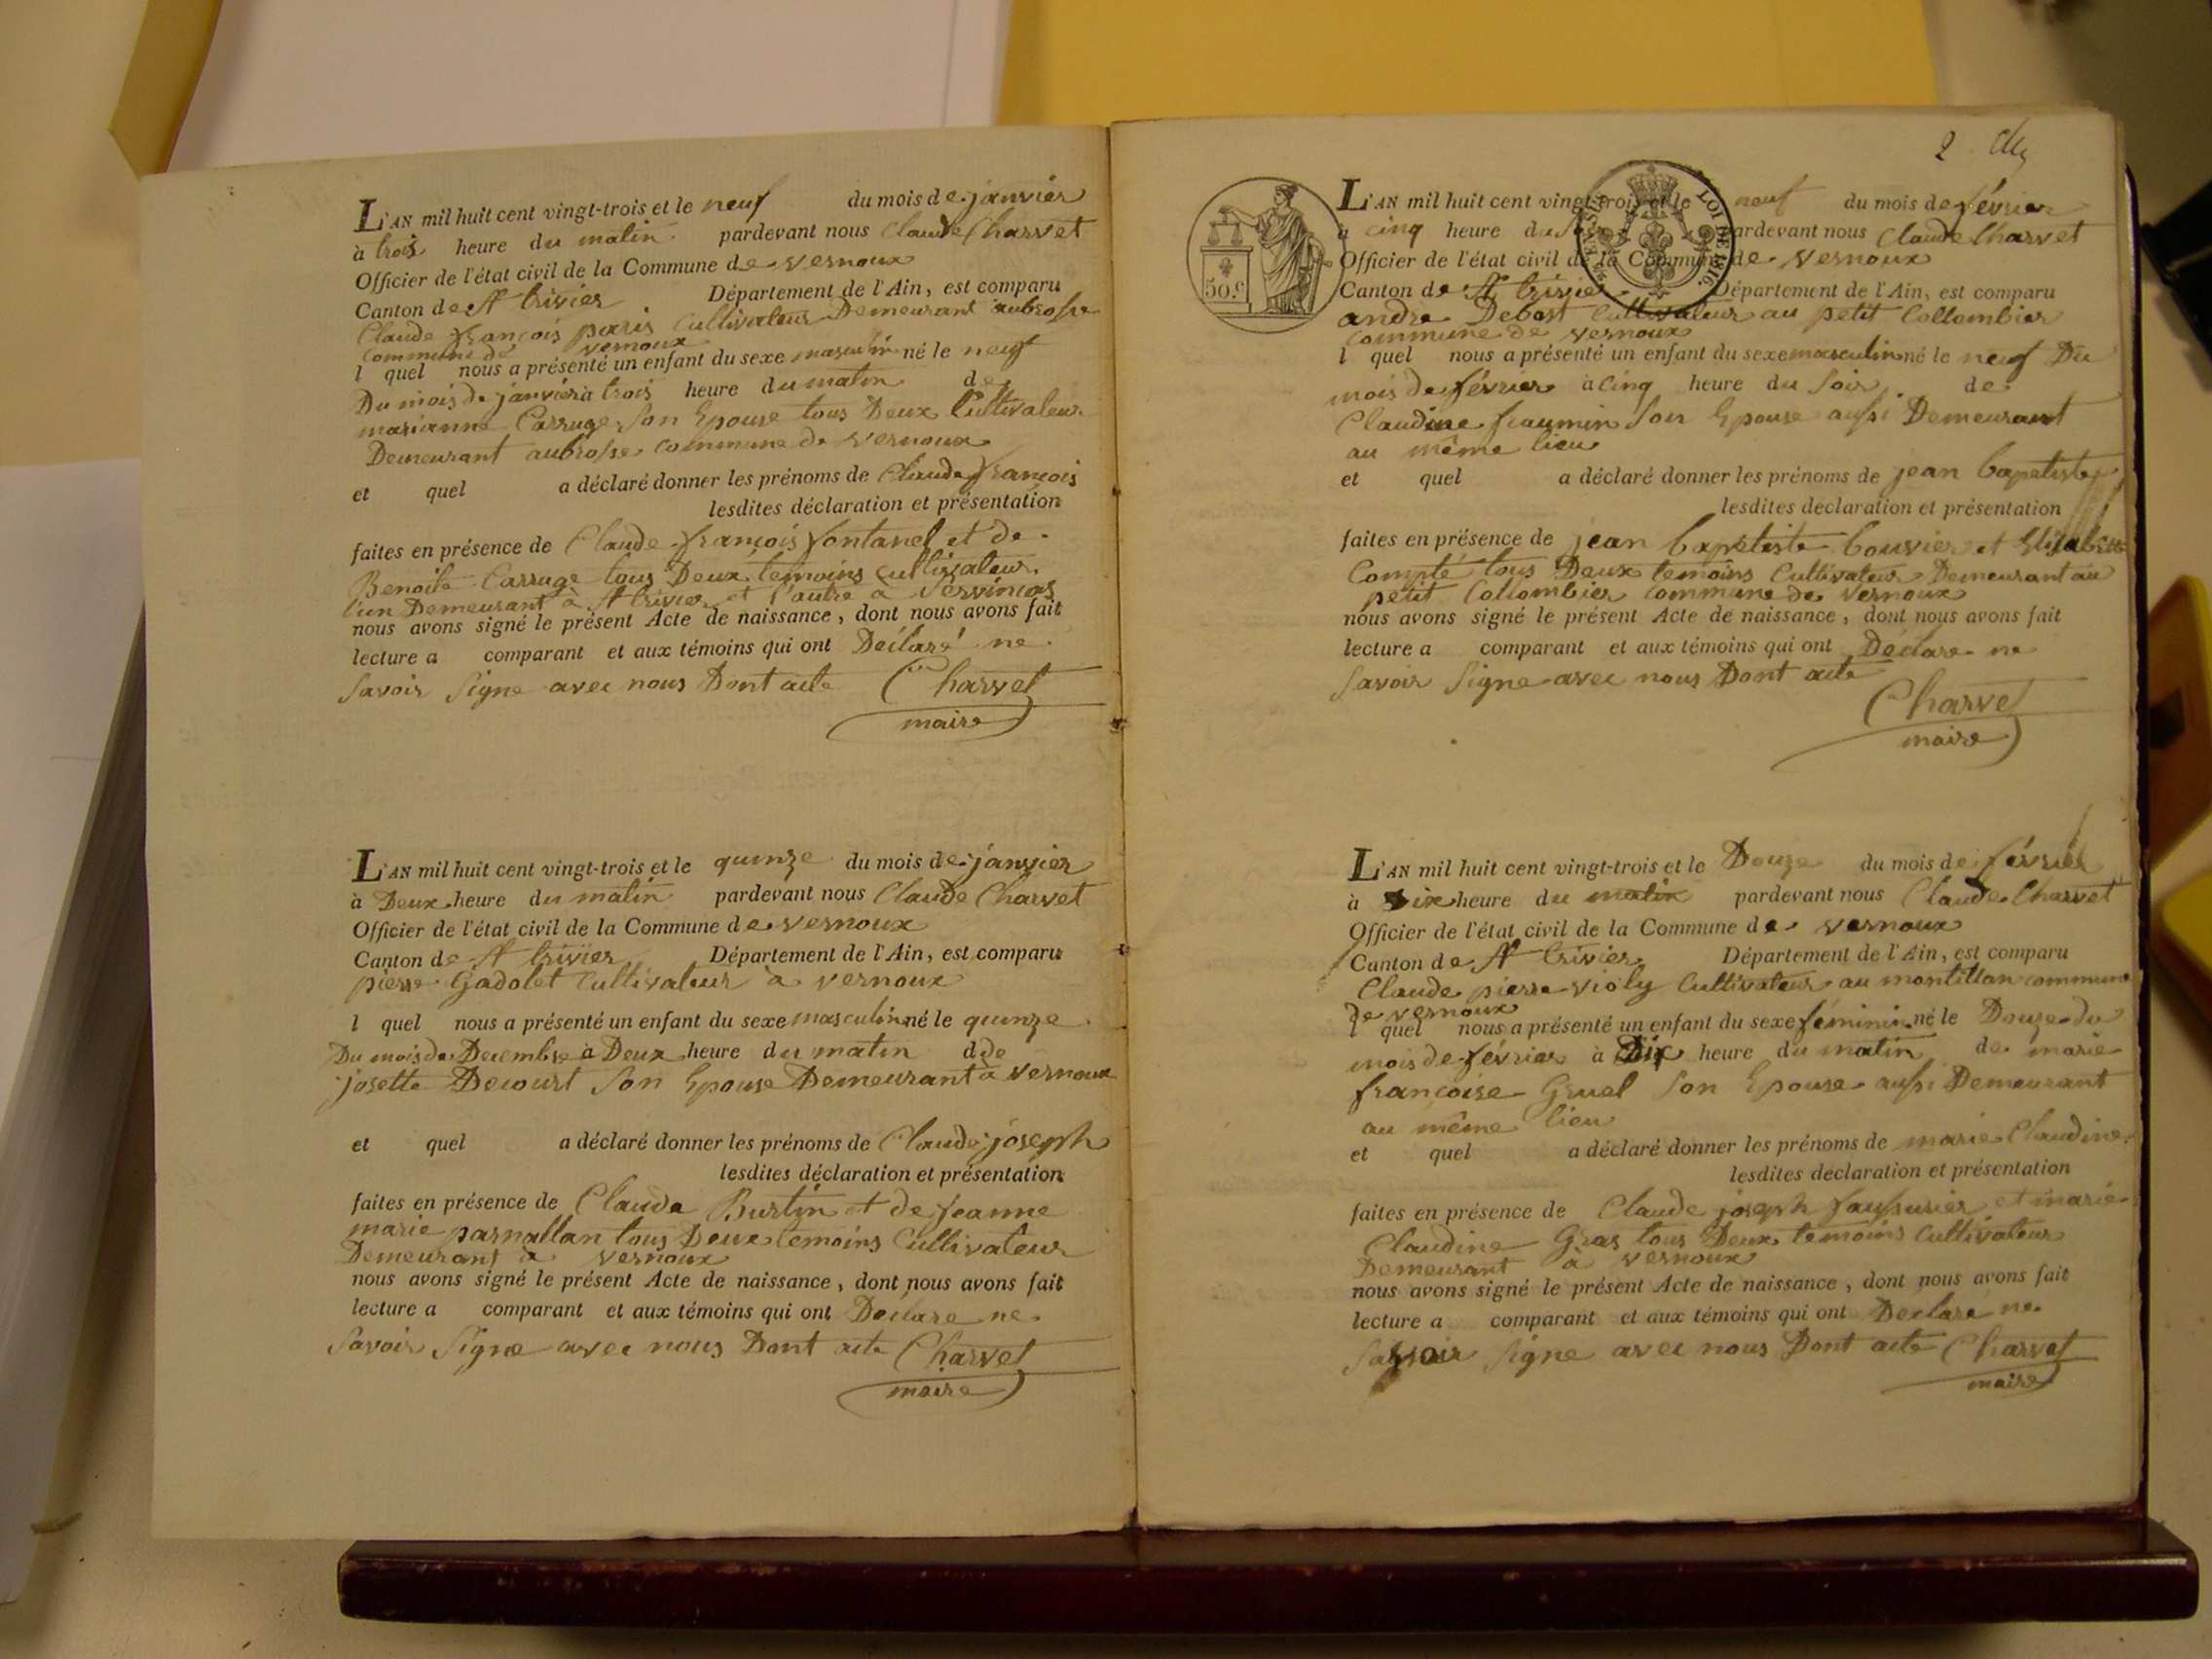 L'AN mil huit cent vingt-trois et le neuf du mois de janvier
à trois heure du matin pardevant nous Claude Charvet
Officier de l'état civil de la Commune de vernoux
Canton de St trivier Département de l'Ain, est comparu
Claude françois paris Cultivateur Demeurant aubrosse
commune de vernoux
l quel nous a présenté un enfant du sexe masculin né le neuf
Du mois de janvier à trois heure du matin de
marianne Carruge Son Epouse tous Deux Cultivateur
Demeurant aubrosse commune de vernoux
et quel a déclaré donner les prénoms de Claude françois
lesdites déclaration et présentation
faites en présence de Claude françois fontanel et de
Benoite Carruge tous Deux temoins cultivateur
l'un Demeurant à St trivier et l'autre à
nous avons signé le présent Acte de naissance, dont nous avons fait
lecture a comparant et aux témoins qui ont Déclaré ne
Savoir Signe avec nous Dont acte Charvet
maire
L'AN mil huit cent vingt-trois et le quinze du mois de janvier
à Deux heure du matin pardevant nous Claude Charvet
Officier de l'état civil de la Commune de vernoux
Canton de St trivier Département de l'Ain, est comparu
pierre Gadolet Cultivateur à vernoux
l quel nous a présenté un enfant du sexe masculin né le quinze
Du mois de Decembre à Deux heure du matin dde
josette Decourt Son Epouse Demeurant à vernoux
et quel a déclaré donner les prénoms de Claude joseph
lesdites déclaration et présentation
faites en présence de Claude Burtin et de jeanne
marie parnallan tous Deux temoins Cultivateur
Demeurant à vernoux
nous avons signé le présent Acte de naissance, dont nous avons fait
lecture a comparant et aux témoins qui ont Déclare ne
Savoir Signe avec nous Dont acte Charvet
maire
2
50.c
LOI DE 1816.
L'AN mil huit cent vingt-trois et le neuf du mois de février
à cinq heure du Soir pardevant nous Claude Charvet
Officier de l'état civil de la Commune de vernoux
Canton de St trivier Département de l'Ain, est comparu
andré Debost Cultivateur au petit Collombier
commune de vernoux
l quel nous a présenté un enfant du sexe masculin né le neuf Du
mois de février à cinq heure du Soir de
Claudine fraumin Son Epouse aussi Demeurant
au même lieu
et quel a déclaré donner les prénoms de jean bapetiste
lesdites déclaration et présentation
faites en présence de jean bapetiste bouvier et Elizabette
Compte tous Deux temoins Cultivateur Demeurant au
petit Collombier commune de vernoux
nous avons signé le présent Acte de naissance, dont nous avons fait
lecture a comparant et aux témoins qui ont Déclare ne
Savoir Signe avec nous Dont acte
Charvet
maire
L'AN mil huit cent vingt-trois et le Douze du mois de février
à Dix heure du matin pardevant nous Claude Charvet
Officier de l'état civil de la Commune de vernoux
Canton de St trivier Département de l'Ain, est comparu
Claude pierre violy Cultivateur au montillon commune
de vernoux
l quel nous a présenté un enfant du sexe féminin né le Douze du
mois de février à Dix heure du matin de marie
françoise Gruel Son Epouse aussi Demeurant
au même lieu
et quel a déclaré donner les prénoms de marie Claudine
lesdites déclaration et présentation
faites en présence de Claude joseph faussurier et marie
Claudine Gras tous Deux temoins Cultivateur
Demeurant à vernoux
nous avons signé le présent Acte de naissance, dont nous avons fait
lecture a comparant et aux témoins qui ont Declare ne
Savoir Signe avec nous Dont acte Charvet
maire